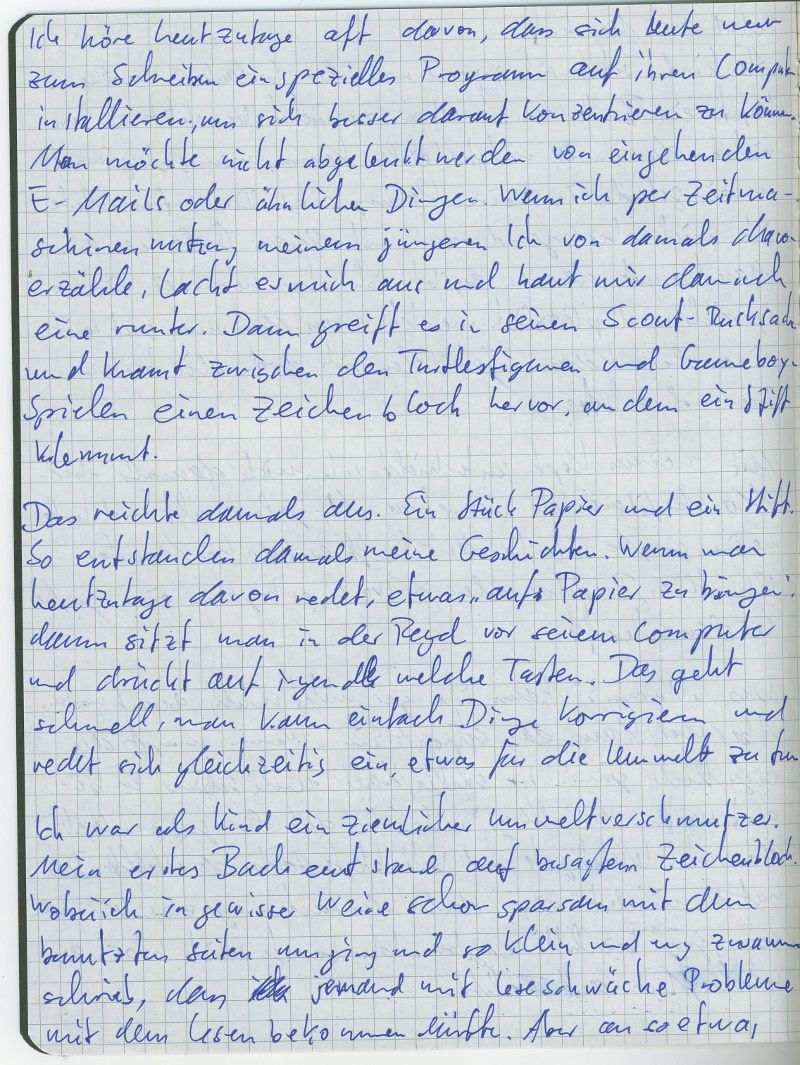 Ich höre heutzutage oft davon, dass sich Leute nun
zum Schreiben ein spezielles Programm auf ihren Computer
installieren, um sich besser darauf konzentrieren zu können.
Man möchte nicht abgelenkt werden von eingehenden
E-Mails oder ähnlichen Dingen. Wenn ich per Zeitma-
schinennutzung meinem jüngeren Ich von damals davon
erzähle, lacht es mich aus und haut mir danach
eine runter. Dann greift es in seinen Scout-Rucksack
und kramt zwischen den Turtlesfiguren und Gameboy-
Spielen einen Zeichenblock hervor, an dem ein Stift
klemmt.
Das reichte damals aus. Ein Stück Papier und ein Stift.
So entstanden damals meine Geschichten. Wenn man
heutzutage davon redet, etwas „aufs Papier zu bringen",
dann sitzt man in der Regel vor seinem Computer
und drückt auf irgend welche Tasten. Das geht
schnell, man kann einfach Dinge korrigieren und
redet sich gleichzeitig ein, etwas für die Umwelt zu tun
Ich war als Kind ein ziemlicher Umweltverschmutzer.
Mein erstes Buch entstand auf besagtem Zeichenblock.
Wobei ich in gewisser Weise schon sparsam mit den
benutzten Seiten umging und so klein und eng zusammen
schrieb, dass jemand mit Leseschwäche Probleme
mit dem Lesen bekommen dürfte. Aber an so etwas